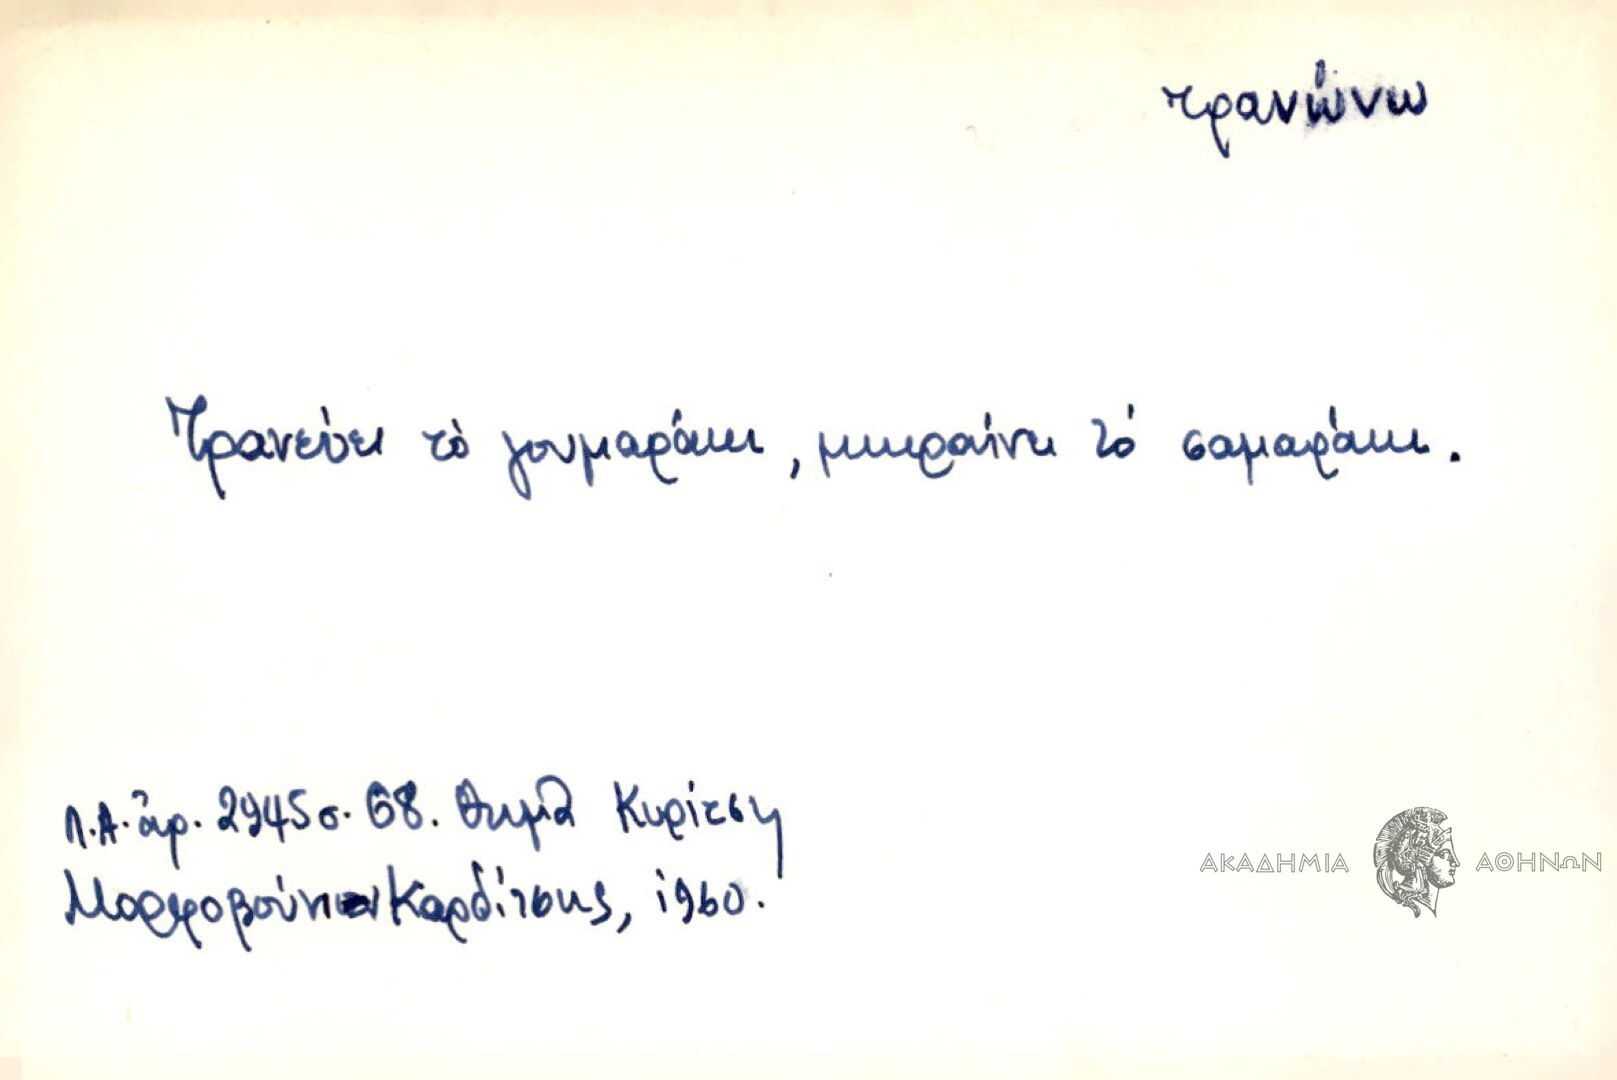 τρανώνω
Τρανεύει τὸ γουμαράκι, μικραίνει τό σαμαράκι.
Λ.Α. ἀρ. 2945 σ. 68. Κυρίτση
Μορφοβούνιον Καρδίτσης, 1960.
ΑΚΑΔΗΜΙΑ ΑΘΗΝΩΝ